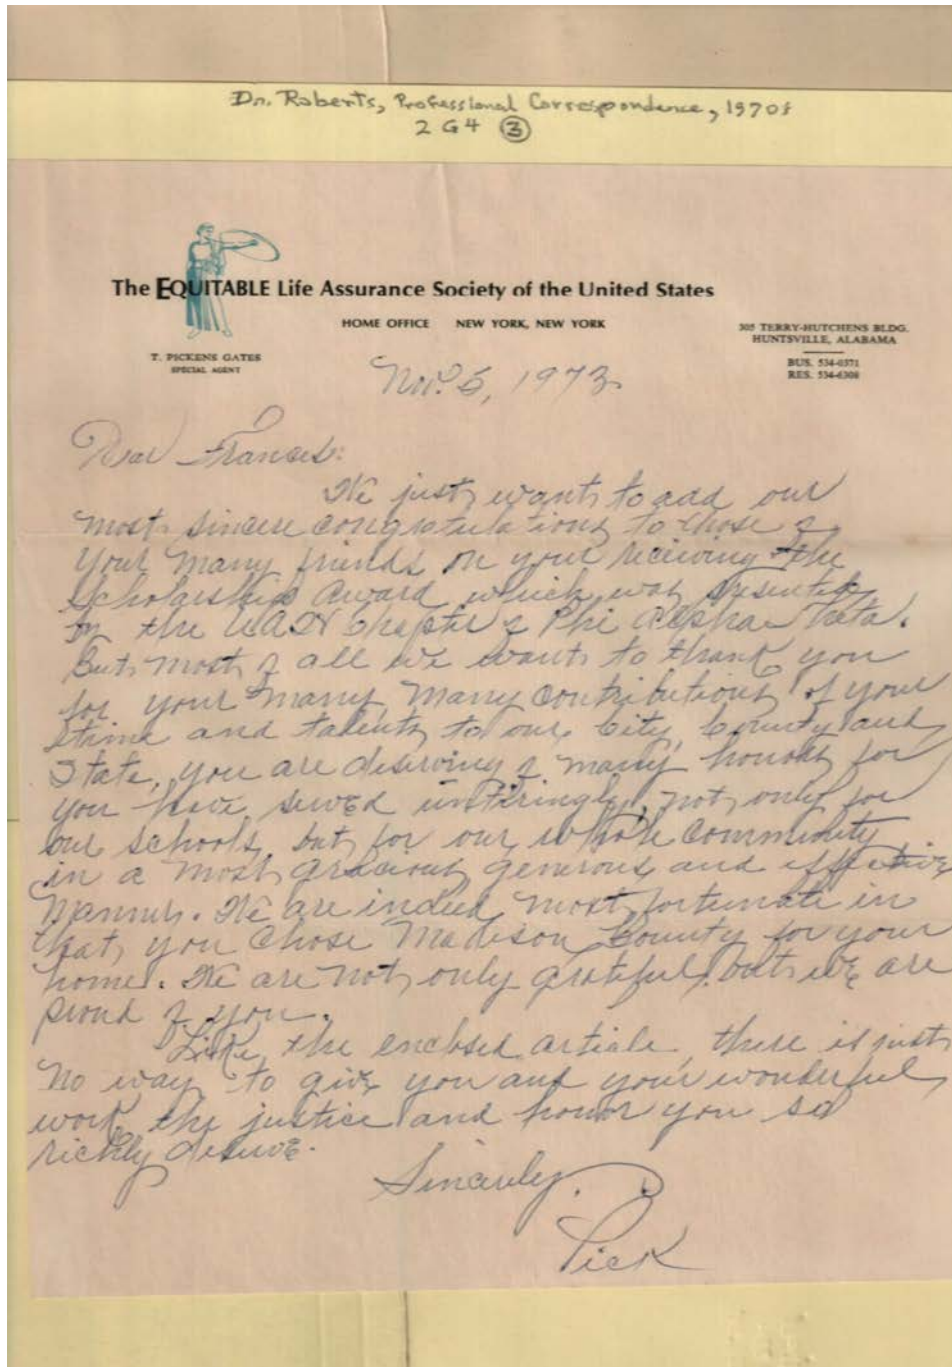 Dr. Roberts, Professional Correspondence, 1970s
2 G4 ③
The EQUITABLE Life Assurance Society of the United States
HOME OFFICE NEW YORK, NEW YORK
305 TERRY-HUTCHENS BLDG.
HUNTSVILLE, ALABAMA
BUS. 534-0371
RES. 534-6308
T. PICKENS GATES
SPECIAL AGENT
Nov. 5, 1973
Dear Frances:
We just want to add our
most sincere congratulations to those of
your many friends on your receiving the
Scholarship Award which was presented
by the UAH Chapter of Phi Alpha Theta.
But most of all we want to thank you
for your many, many contributions of your
time and talents to our City, County and
State, you are deserving of many honors for
you have served untiringly, not only for
our schools, but for our whole community
in a most gracious generous and effective
manner. We are indeed most fortunate in
that you chose Madison County for your
home. We are not only grateful, but we are
proud of you.
Like the enclosed article, there is just
no way to give you and your wonderful
work the justice and honor you so
richly deserve.
Sincerely,
Pick